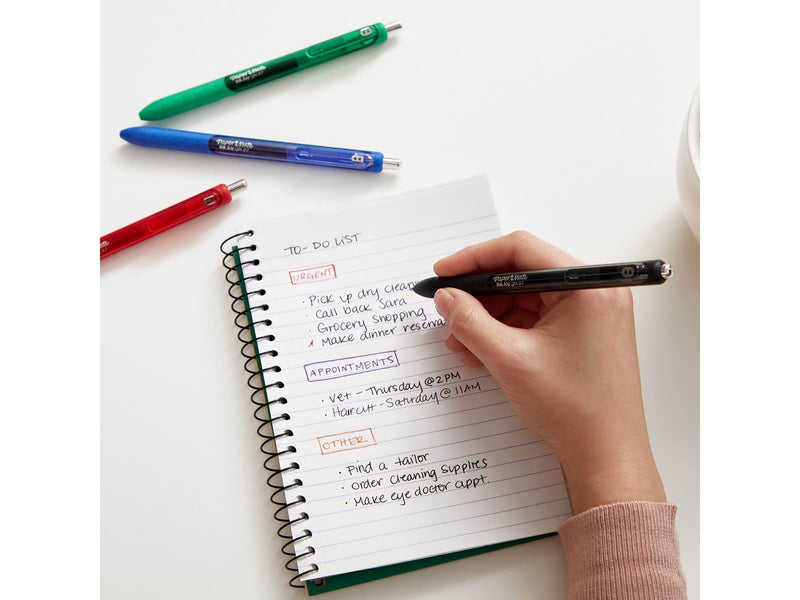 PAPER MATE
InkJoy gel 0.7
PAPER MATE
InkJoy gel 0.7
PAPER MATE
TO-DO LIST
URGENT
· Pick up dry cleani
· Call back Sara
· Grocery Shopping
* Make dinner reserva
APPOINTMENTS
· Vet - Thursday @ 2PM
· Haircut - Saturday @ 11AM
OTHER
· Find a tailor
· Order Cleaning Supplies
· Make eye doctor appt.
PAPER MATE
InkJoy gel 0.7